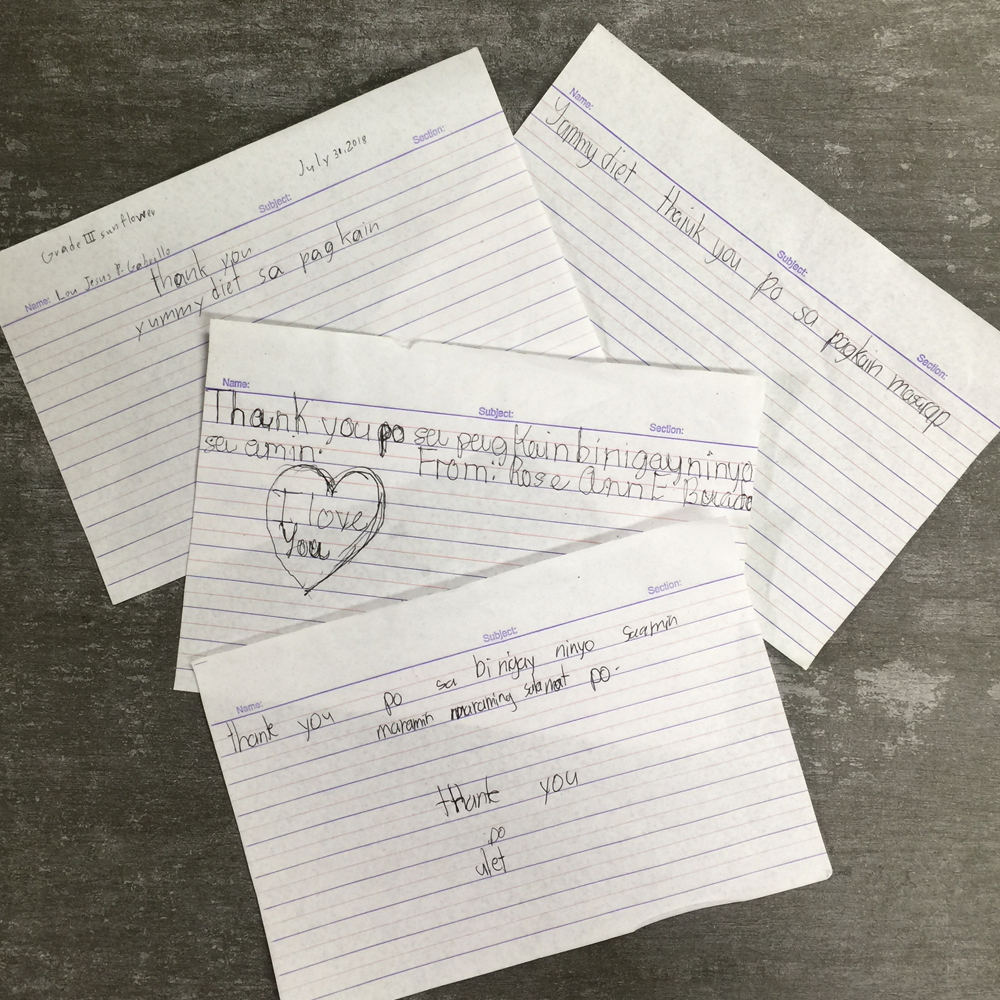 July 30, 2018
Grade III sunflower
Name: Lou Jesus P. Subject: Section:
thank you
yummy diet sa pagkain
Name: Subject: Section:
Yammy diet thank you po sa pagkain masarap
Name: Subject: Section:
Thank you po sa pagkain binigay ninyo
sa amin. From: Rose Ann E
I love
You
Name: Subject: Section:
thank you po sa binigay ninyo saamin
maramin maraming salamat po.
thank you
po
ulet